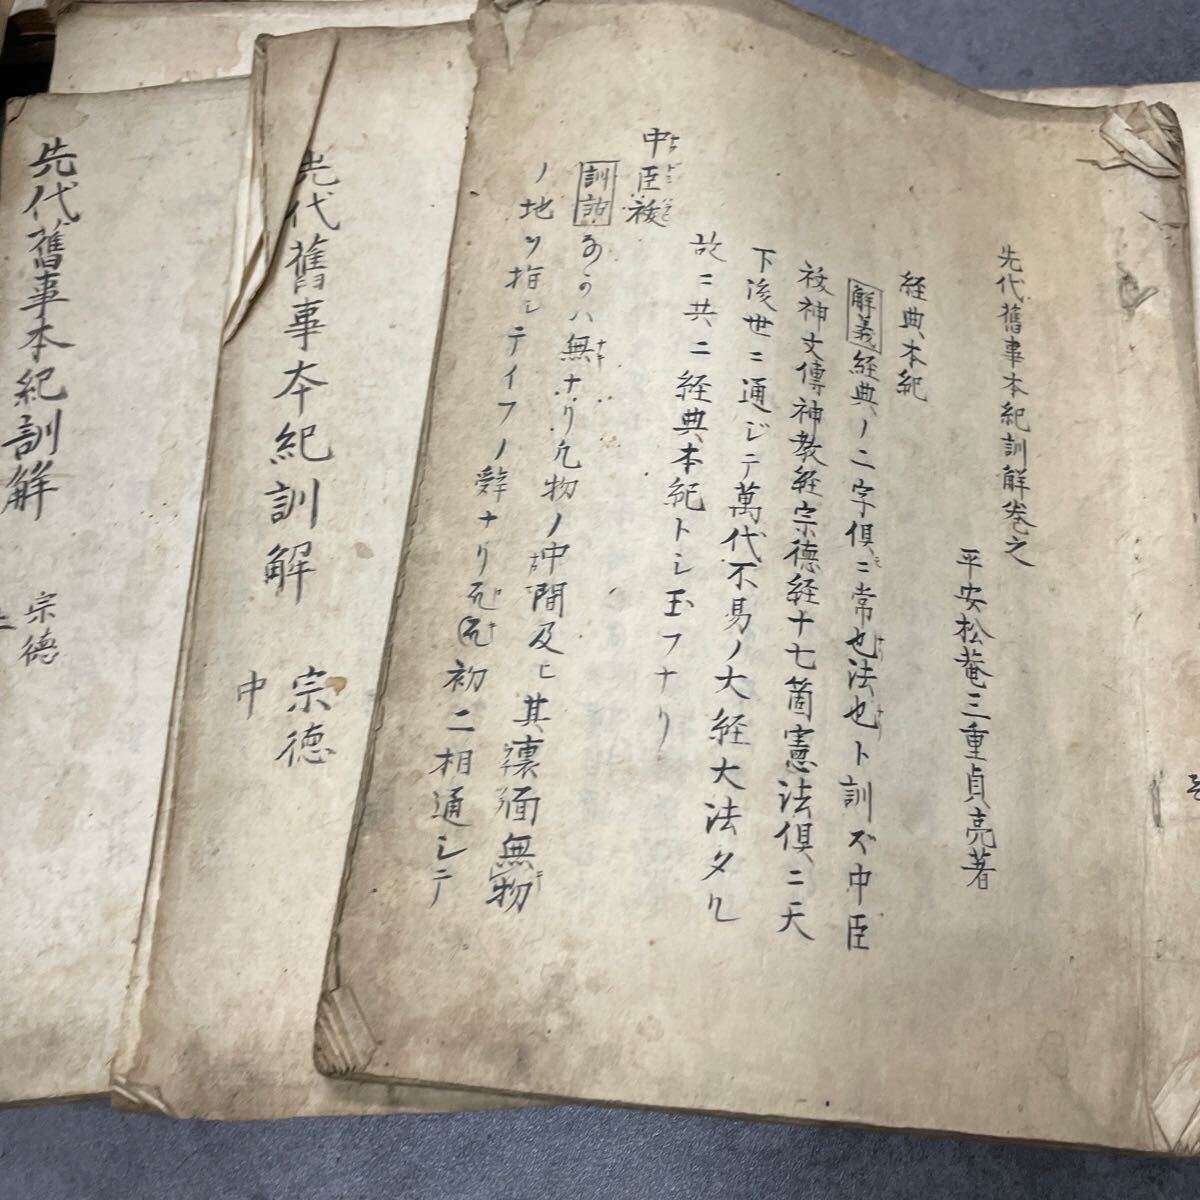 先代舊事本紀訓解巻之
平安松菴三重貞亮著
経典本紀
解義 経典ノ二字倶ニ常也法也ト訓ズ中臣
祓神文傳神教経宗德経十七箇憲法倶ニ天
下後世ニ通ジテ萬代不易ノ大経大法タル
故ニ共ニ経典本紀トシ玉フナリ
中臣祓
訓詁 ハ無ナリ凡物ノ中間及ヒ其裏面無物
ノ地ヲ指シテイフノ辞ナリ 初ニ相通シテ
先代舊事本紀訓解
宗德
中
先代舊事本紀訓解
宗德